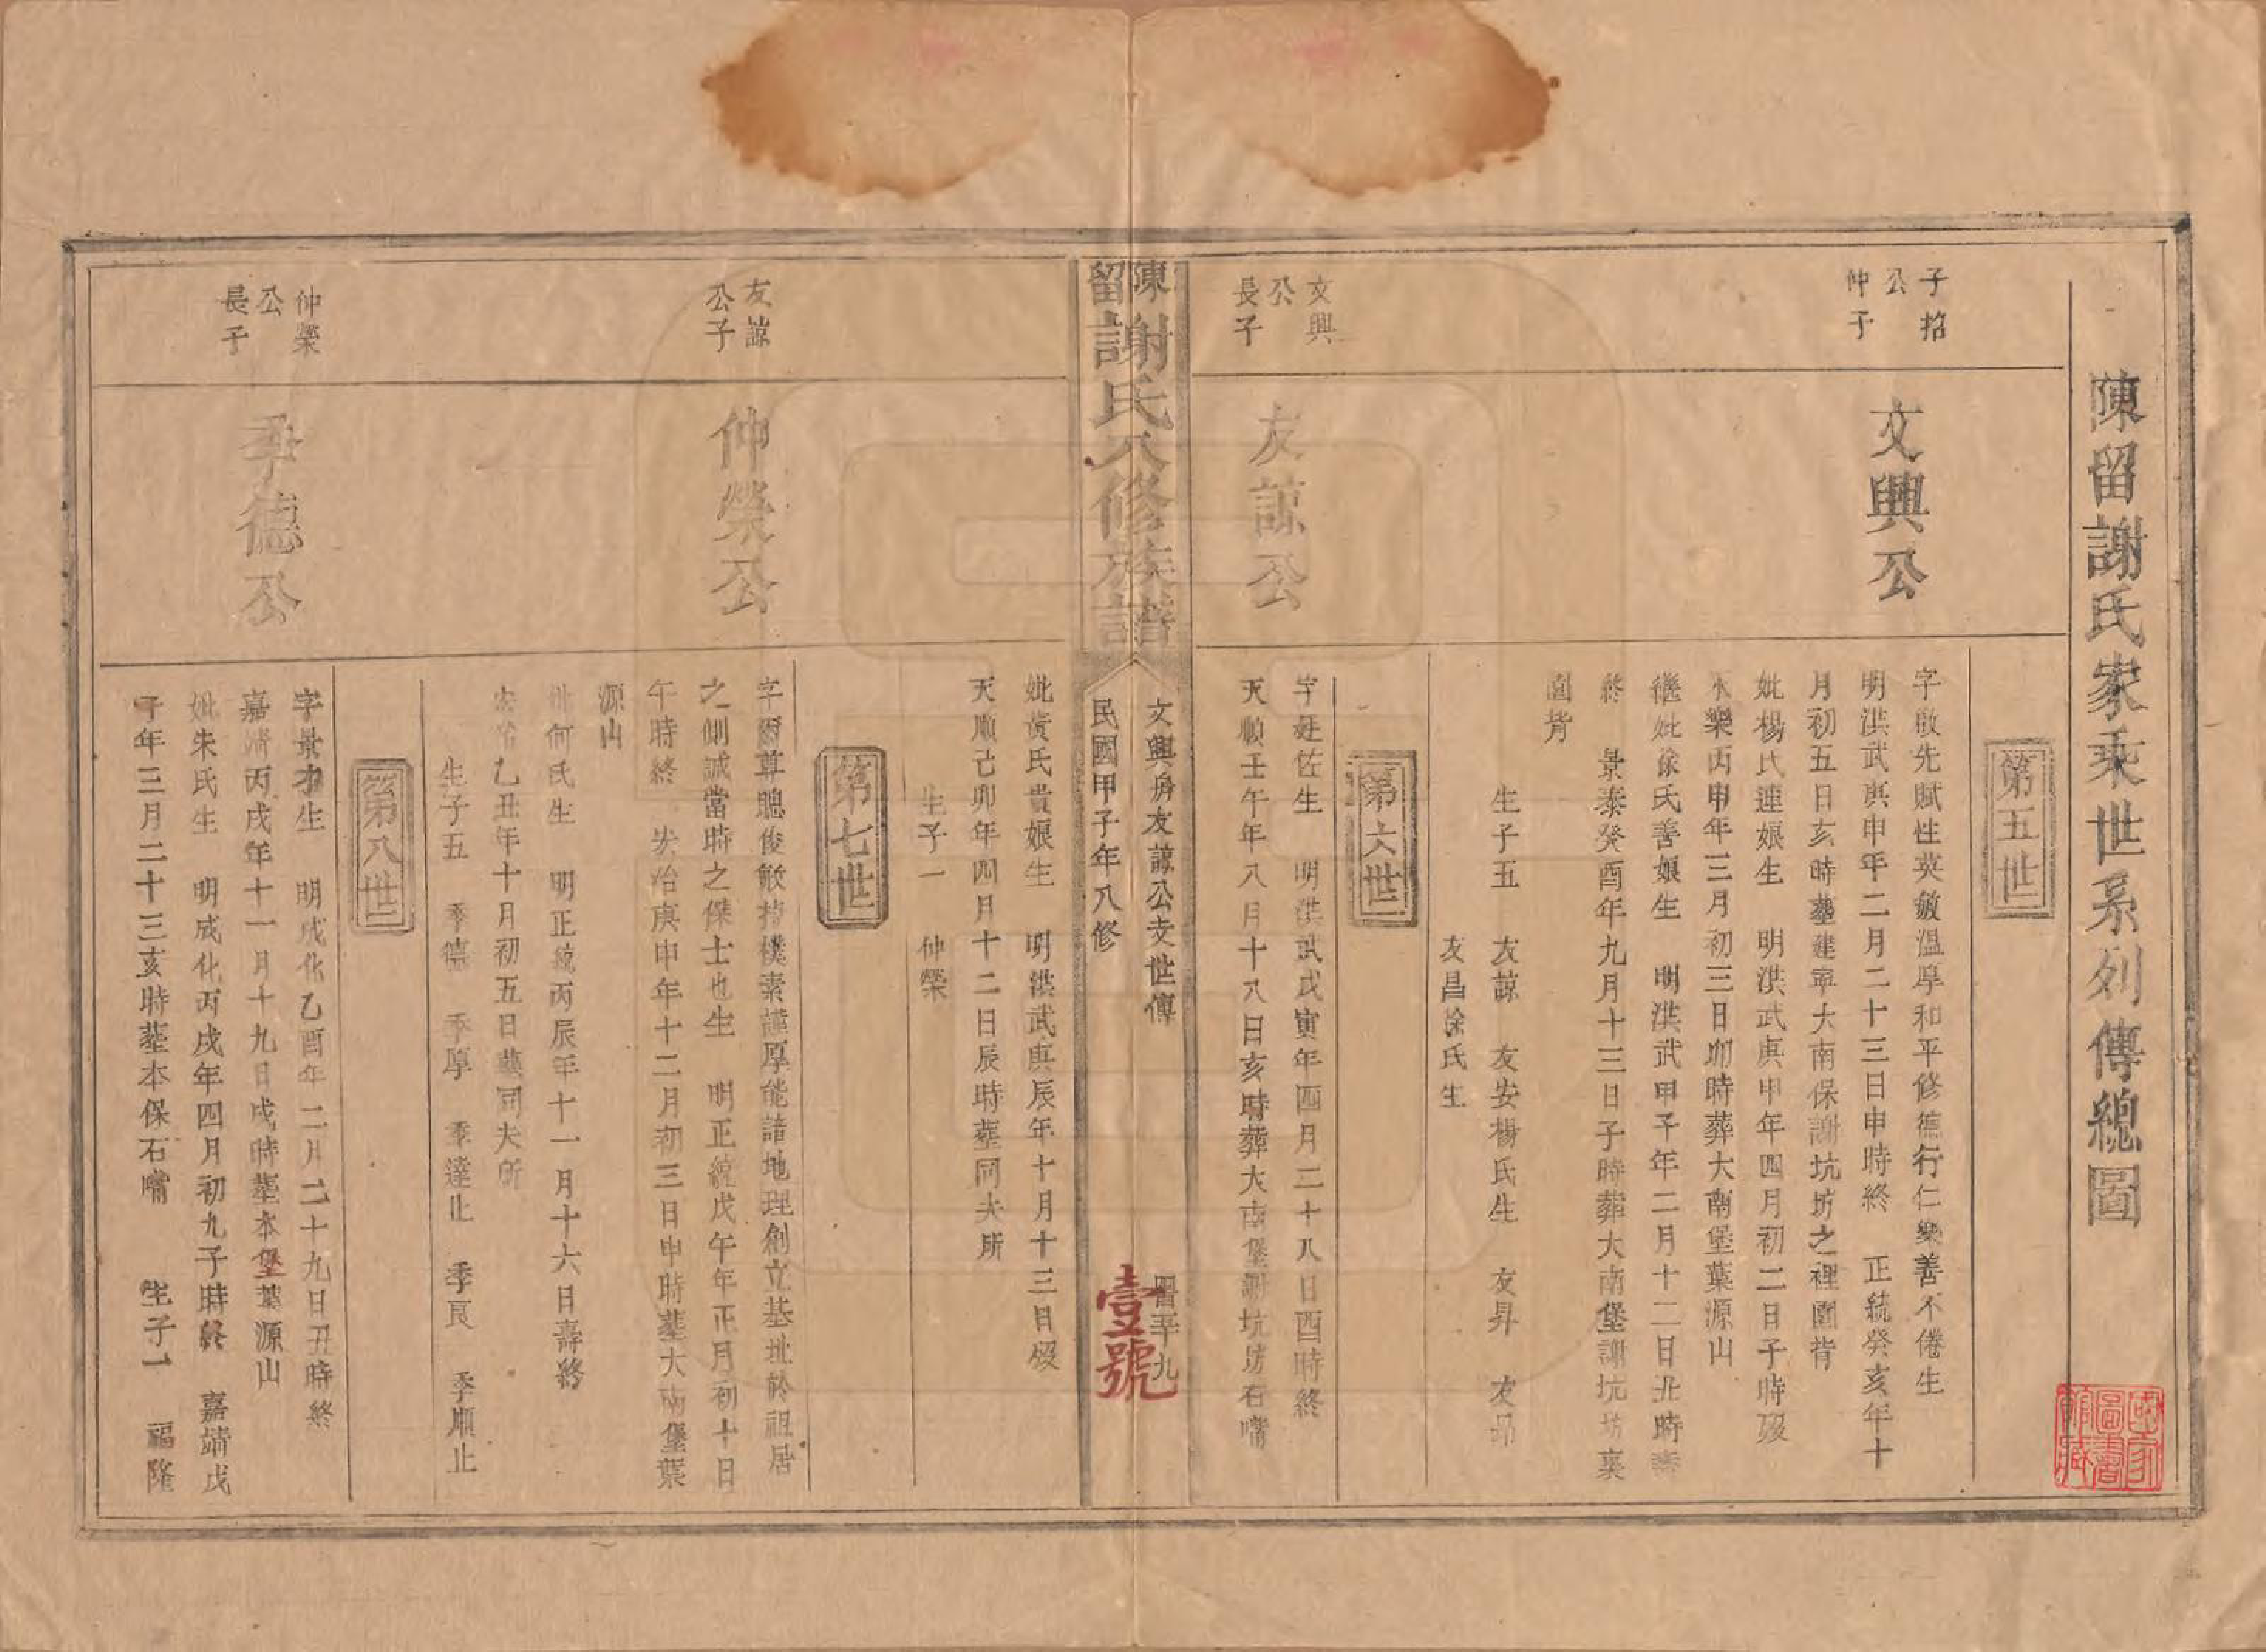 陳留謝氏家乘世系列傳總圖
國家圖書館藏
第五世
子招公仲子
文興公
字敬先賦性英敏溫厚和平修德行仁樂善不倦生
明洪武庚申年二月二十三日申時終　正統癸亥年十
月初五日亥時塟建寧大南保謝坑坊之裡圍背
妣楊氏連娘生　明洪武庚申年四月初二日子時歿
永樂丙申年三月初三日卯時葬大南堡葉源山
繼妣徐氏善娘生　明洪武甲子年二月十二日丑時壽
終　景泰癸酉年九月十三日子時葬大南堡謝坑坊裏
圍背
生子五　友諒　友安楊氏生　友昇　友昂
友昌徐氏生
第六世
文興公長子
友諒公
字廷佐生　明洪武戊寅年四月二十八日酉時終
天順壬午年八月十八日亥時葬大南堡謝坑坊石嘴
陳留謝氏八修族譜
文興房友諒公支世傳
民國甲子年八修
壹號
妣黃氏貴娘生　明洪武庚辰年十月十三日歿
天順己卯年四月十二日辰時塟同夫所
生子一　仲榮
第七世
友諒公子
仲榮公
字爾尊聰俊敏持樸素謹厚能諳地理創立基址於祖居
之側誠當時之傑士也生　明正統戊午年正月初十日
午時終　弘治庚申年十二月初三日申時塟大南堡葉
源山
妣何氏生　明正統丙辰年十一月十六日壽終
弘治乙丑年十月初五日塟同夫所
生子五　季德　季厚　季達止　季良　季順止
第八世
仲榮公長子
季德公
字景才生　明成化乙酉年二月二十九日丑時終
嘉靖丙戌年十一月十九日戌時塟本堡葉源山
妣朱氏生　明成化丙戌年四月初九子時終　嘉靖戊
子年三月二十三亥時塟本保石嘴　生子一　福隆